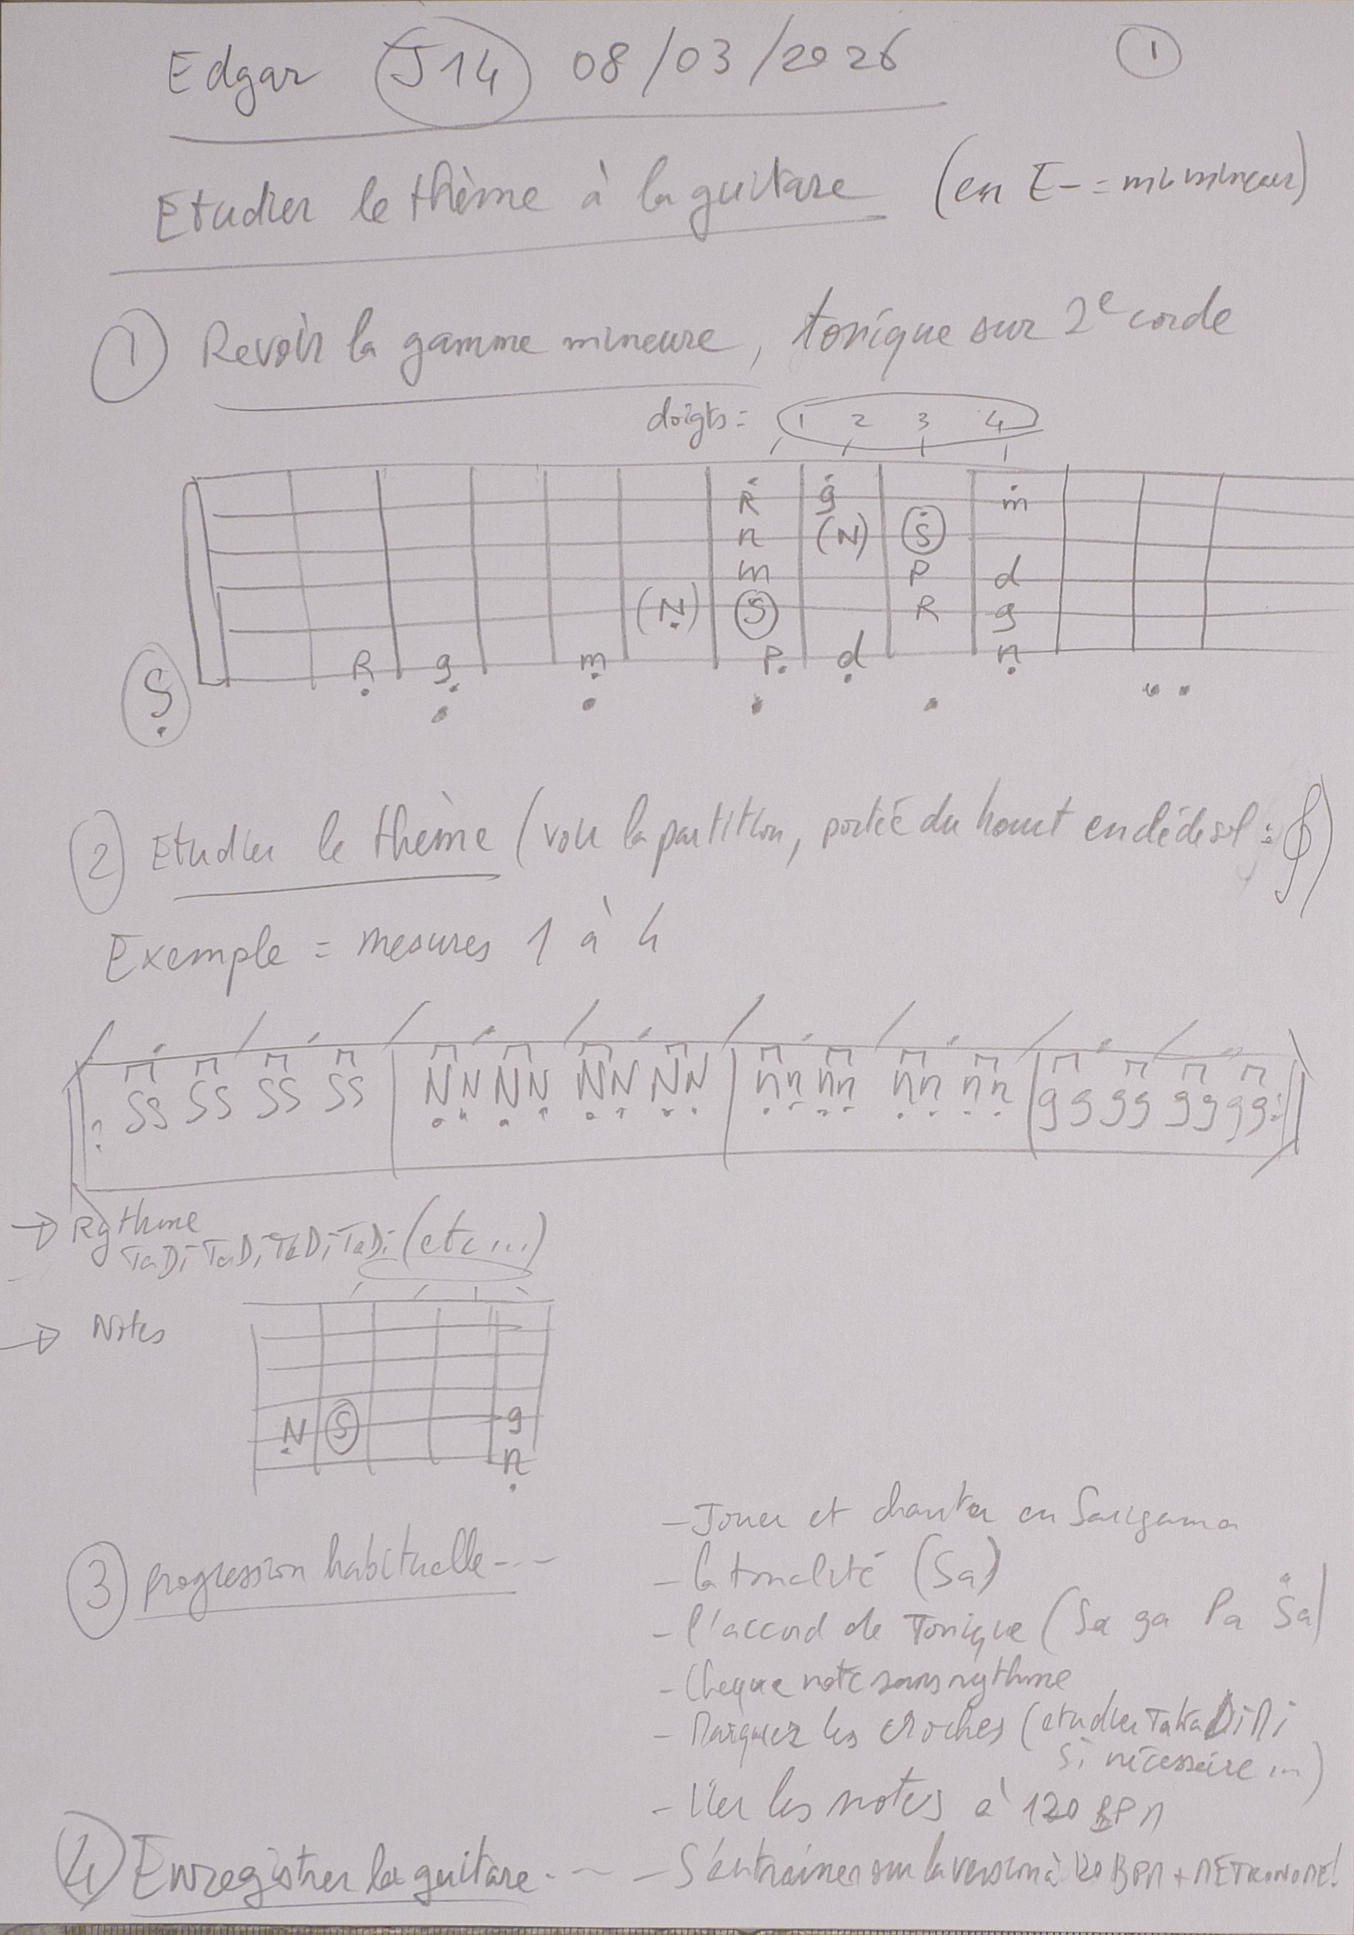 Edgar J14 08/03/2026 1
Etudier le thème à la guitare (en E- = mi mineur)
1 Revoir la gamme mineure, tonique sur 2e corde
doigts = 1 2 3 4
Ṙ ġ ṁ
n (N) Ṡ
m P d
(Ṇ) S R g
Ṣ Ṛ g̣ ṃ P̣ ḍ ṇ
2 Etudier le thème (voir la partition, portée du haut en clé de sol : 𝄞)
Exemple = mesures 1 à 4
: SS SS SS SS | ṆṆ ṆṆ ṆṆ ṆṆ | ṇṇ ṇṇ ṇṇ ṇṇ | gg gg gg gg :
→ Rythme
TaDi TaDi TaDi TaDi (etc...)
→ Notes
Ṇ S g
ṇ
3 progression habituelle ---
- Jouer et chanter en Sarigama
- la tonalité (Sa)
- l'accord de Tonique (Sa ga Pa Ṡa)
- Chaque note sans rythme
- Marquer les croches (etudier TakaDiMi
si nécessaire ...)
- Lier les notes à 120 BPM
4 Enregistrer la guitare - --
- S'entraîner sur la version à 120 BPM + METRONOME!